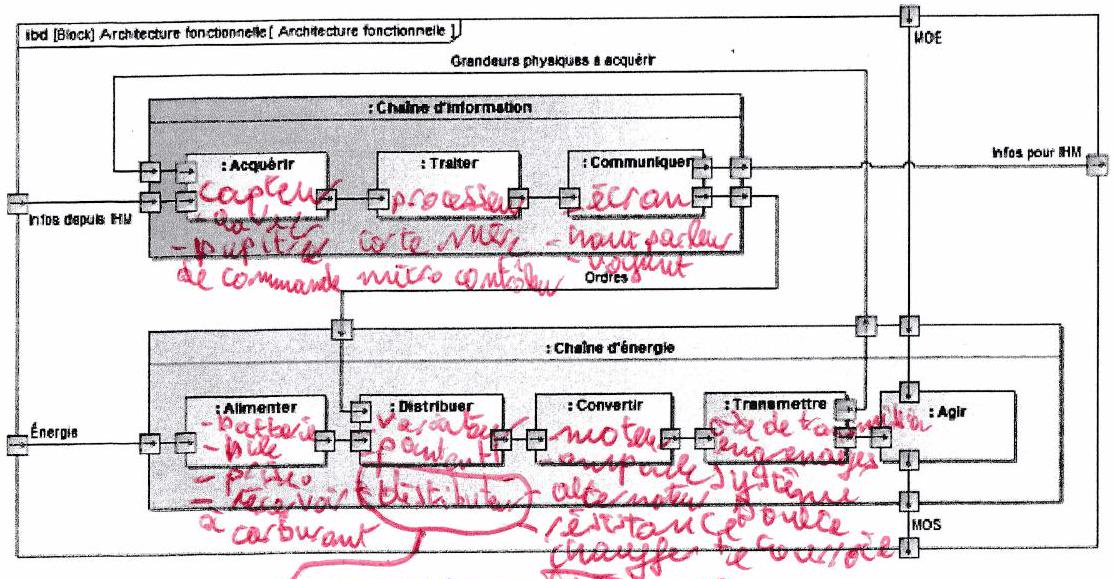 ibd [Block] Architecture fonctionnelle [ Architecture fonctionnelle ]
MOE
Grandeurs physiques à acquérir
: Chaîne d'information
: Acquérir
: Traiter
: Communiquer
Infos pour IHM
Infos depuis IHM
capteur
- pupitre
de commande
processeur
carte mère
micro contrôleur
- écran
- haut parleur
- voyant
Ordres
: Chaîne d'énergie
: Alimenter
: Distribuer
: Convertir
: Transmettre
: Agir
Énergie
- batterie
- pile
- prise
- réservoir
à carburant
- variateur
- moteur
- ampoule
alternateur
résistance
chauffe
engrenages
système
MOS